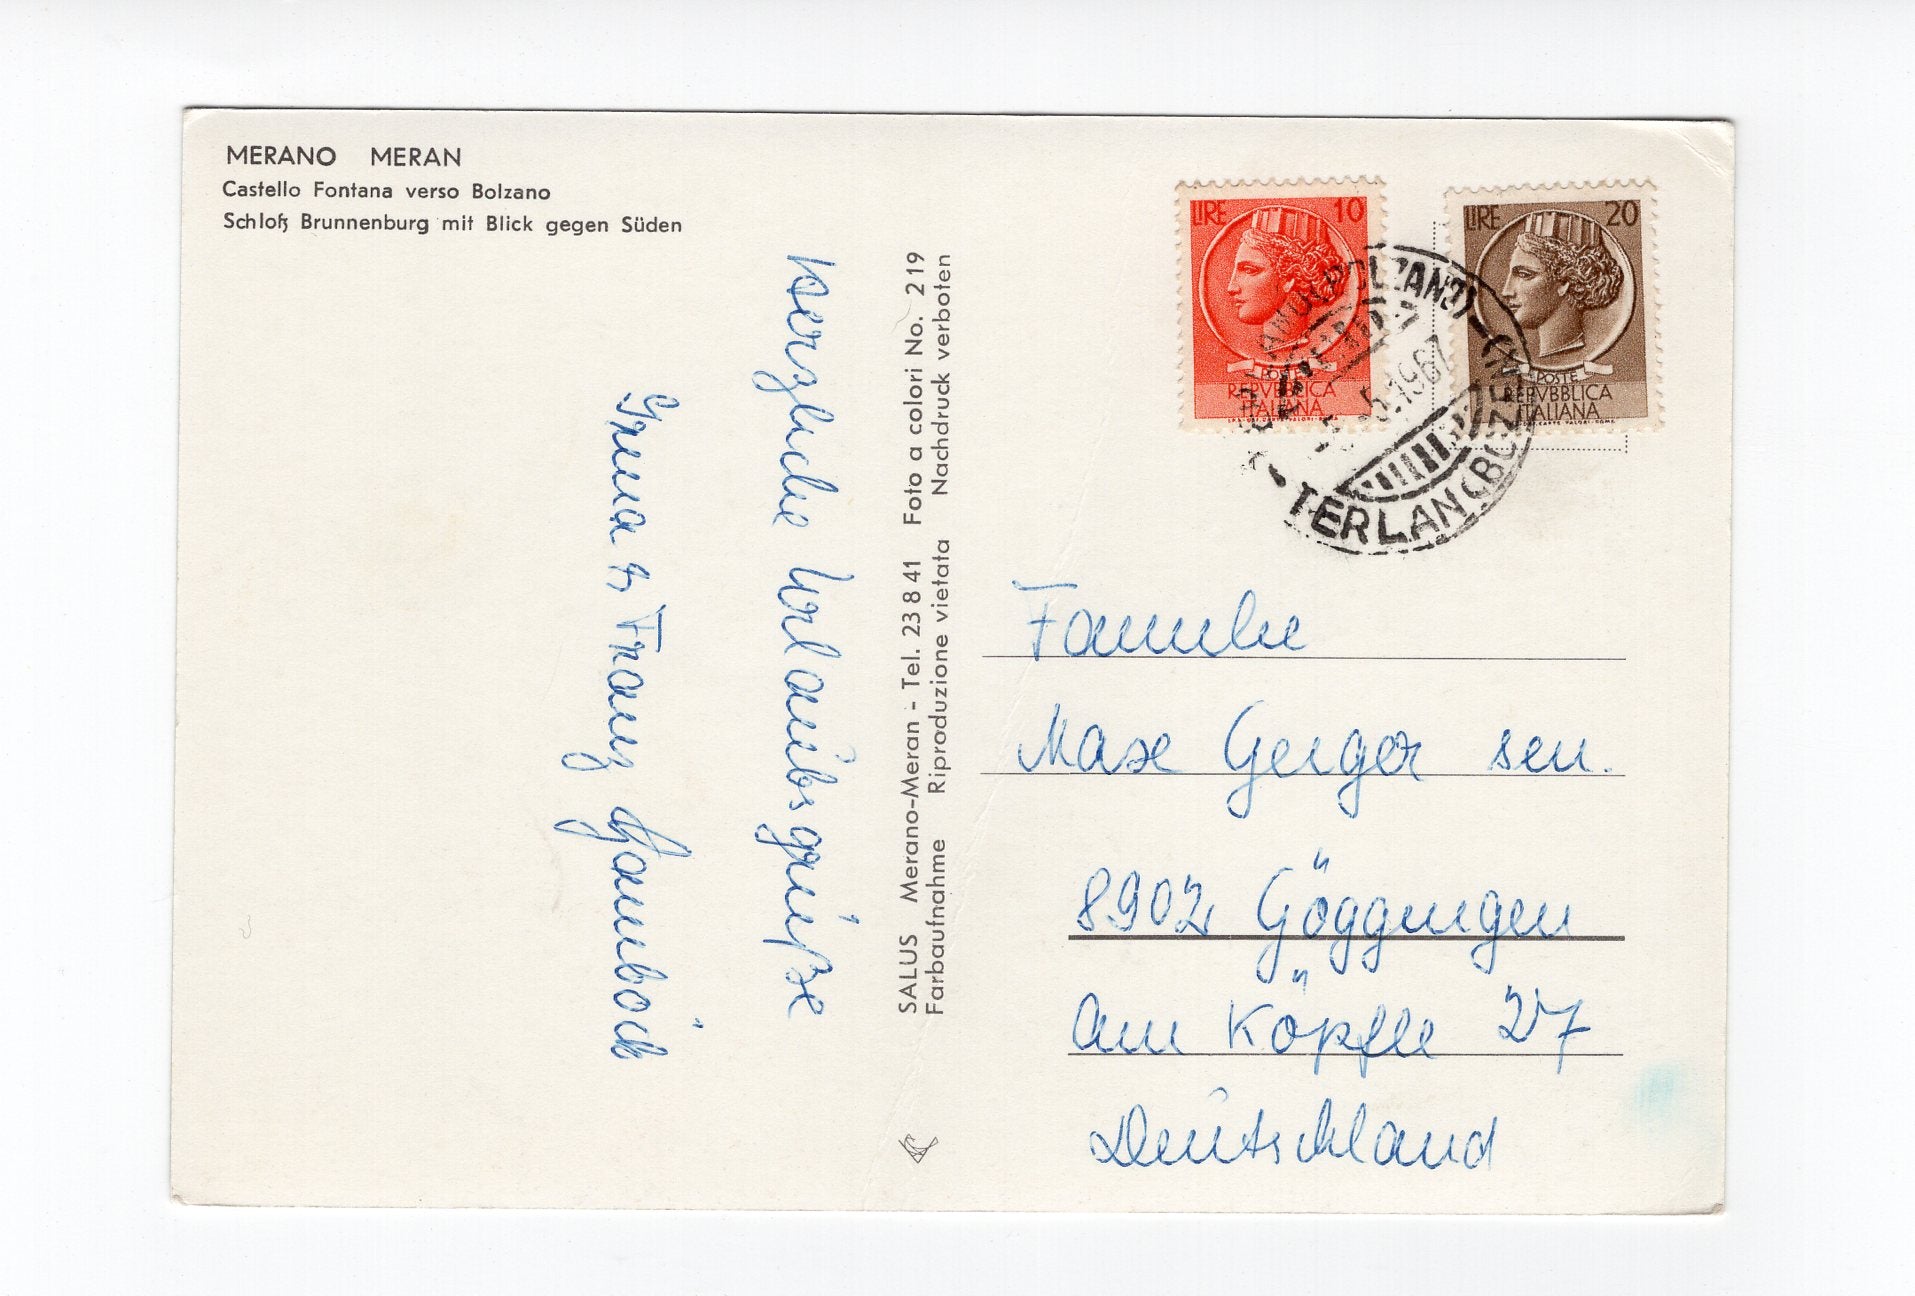 MERANO MERAN
Castello Fontana verso Bolzano
Schloß Brunnenburg mit Blick gegen Süden
Herzliche Urlaubsgrüße
Irma & Franz
SALUS Merano-Meran - Tel. 23 8 41 Foto a colori No. 219
Farbaufnahme Riproduzione vietata Nachdruck verboten
LIRE 10
POSTE
REPVBBLICA
ITALIANA
LIRE 20
POSTE
REPVBBLICA
ITALIANA
(BOLZANO)
5.1967
TERLAN (BOZEN)
Familie
Max Geiger sen.
8902 Göggingen
Am Köpfle 27
Deutschland